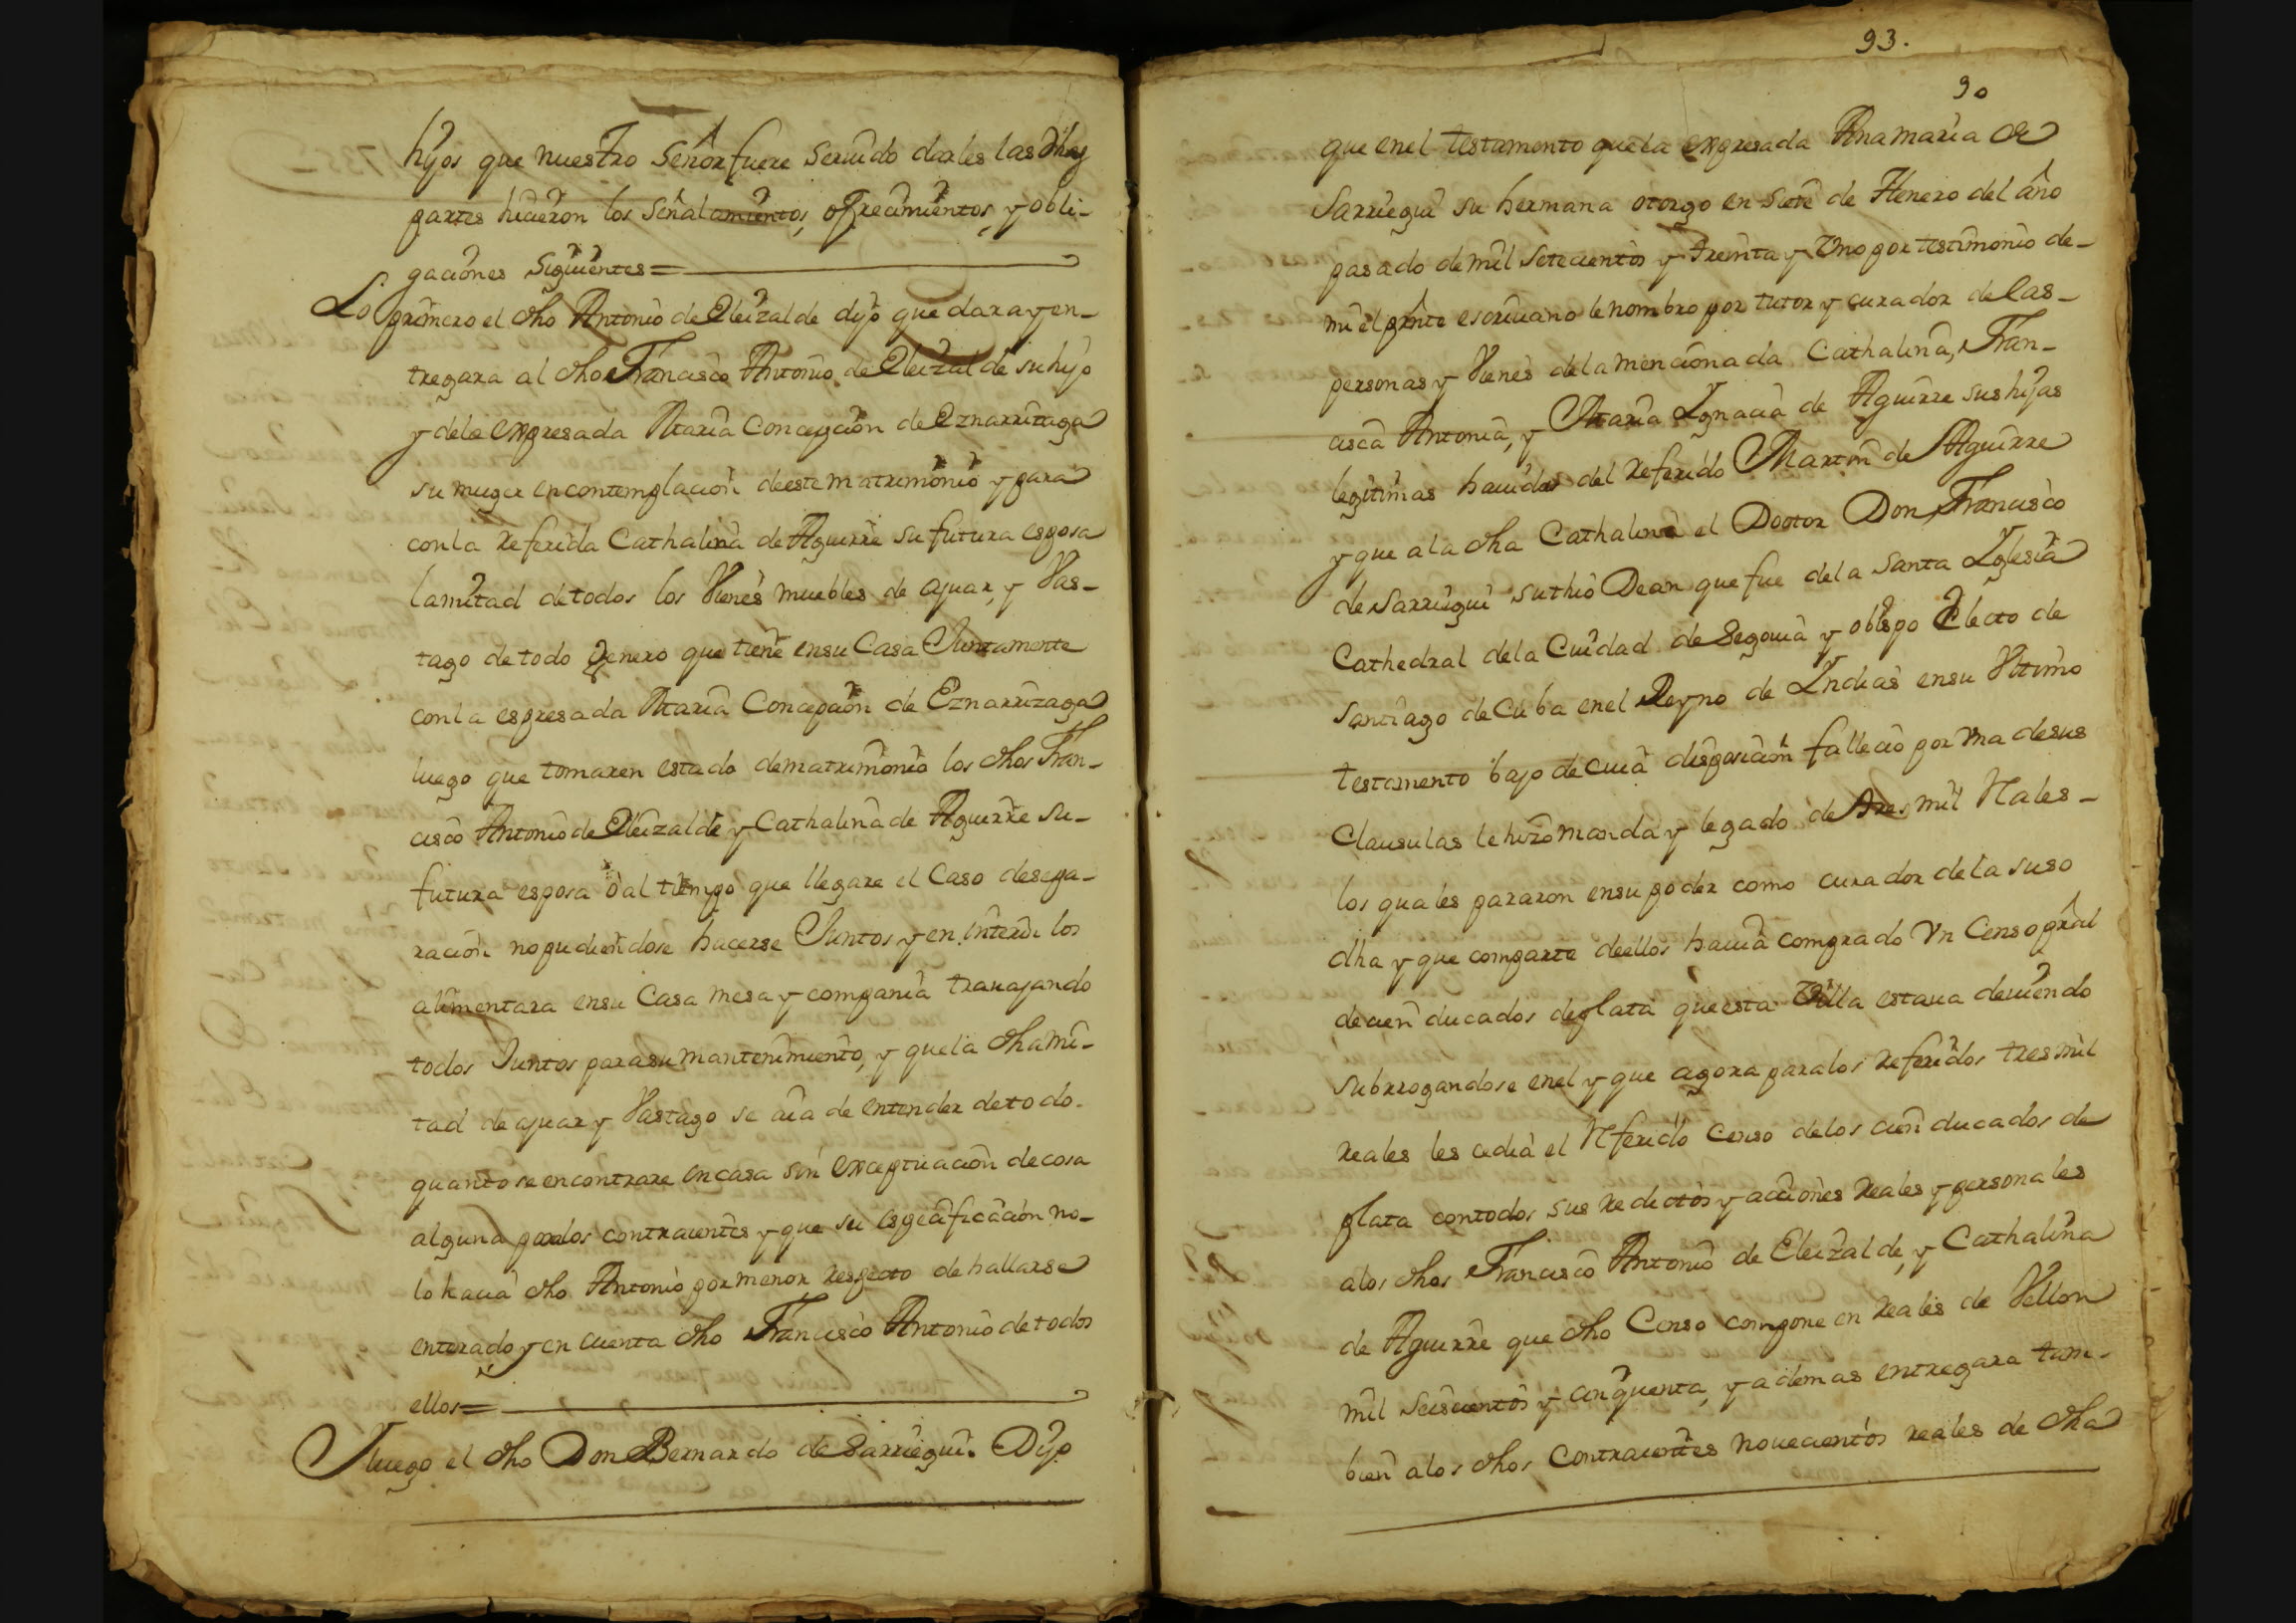 hijos que nuestro Señor fuere seruido darles las dhas
partes hicieron los señalamientos, ofrecimientos, y obli-
gaciones siguientes=
Lo primero el dho Antonio de Eleizalde dijo que dara y en-
tregara al dho Francisco Antonio de Eleizalde su hijo
y dela expresada Maria Concepcion de Eznarrizaga
su muger en contemplacion de este matrimonio y para
con la referida Cathalina de Aguirre su futura esposa
la mitad de todos los Vienes muebles de ajuar, y Vas-
tago de todo genero que tiene en su Casa Juntamente
con la espresada Maria Concepcion de Eznarrizaga
luego que tomaren estado de matrimonio los dhos Fran-
cisco Antonio de Eleizalde y Cathalina de Aguirre su-
futura esposa ò al tiempo que llegare el Caso de sepa-
racion no pudiendose hacerse Juntos y en interin los
alimentara en su Casa mesa y compania trauajando
todos Juntos para su mantenimiento, y que la dha mi-
tad de ajuar y Vastago se aia de entender de todo
quanto se encontrare en casa sin exceptuacion de cosa
alguna por los contraientes y que su especificacion no-
lo hacia dho Antonio por menor respecto de hallarse
enterado y en cuenta dho Francisco Antonio de todos
ellos=
Y luego el dho Don Bernardo de Sarriegui. Dijo
93.
90
que en el testamento que la expresada Ana maria de
Sarriegui su hermana otorgo en siete de Henero del año
pasado de mil setecientos y treinta y Vno por testimonio de-
mi el prnte escriuano le nombro por tutor y curador de las-
personas y Vienes dela mencionada Cathalina, Fran-
cisca Antonia, y Maria Ygnacia de Aguirre sus hijas
legitimas hauidas del referido Martin de Aguirre
y que a la dha Cathalina el Doctor Don Francisco
de Sarriegui su thio Dean que fue dela Santa Yglesia
Cathedral dela Ciudad de Segouia y obispo Electo de
Santiago de Cuba en el Reyno de Yndias en su Vltimo
testamento bajo de cuia disposicion fallecio por Vna de sus
Clausulas le hizo manda y legado de tres mil Rales-
los quales pararon en su poder como curador dela suso
dha y que comparte de ellos hauia comprado Vn Censo prãl
de cien ducados de plata que esta Villa estaua deuiendo
subrrogandose en el y que agora para los referidos tres mil
reales les cedia el Referido censo delos cien ducados de
plata con todos sus redictos y acciones Reales y personales
alos dhos Francisco Antonio de Eleizalde, y Cathalina
de Aguirre que dho Censo compone en reales de Vellon
mil seiscientos y cinquenta, y ademas entregara tam-
bien alos dhos Contraientes nouecientos reales de dha